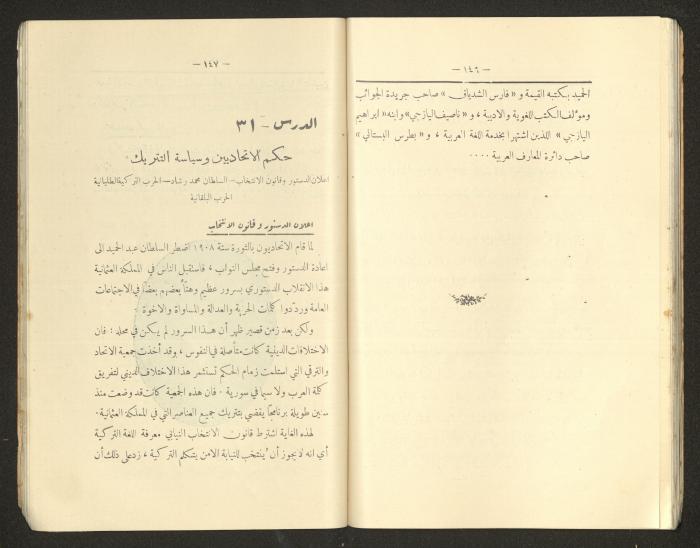 — ١٤٦ —
الحميد بكتبه القيمة و « فارس الشدياق » صاحب جريدة الجوائب
ومؤلف الكتب اللغوية والادبية ، و « ناصيف اليازجي » وابنه « ابراهيم
اليازجي » اللذين اشتهرا بخدمة اللغة العربية ، و « بطرس البستاني »
صاحب دائرة المعارف العربية ....
— ١٤٧ —
الدرس - ٣١
حكم الاتحاديين وسياسة التتريك
اعلان الدستور وقانون الانتخاب - السلطان محمد رشاد - الحرب التركية الطليانية
الحرب البلقانية
اعلان الدستور و قانون الانتخاب
لما قام الاتحاديون بالثورة سنة ١٩٠٨ اضطر السلطان عبد الحميد الى
اعادة الدستور وفتح مجلس النواب ، فاستقبل الناس في المملكة العثمانية
هذا الانقلاب الدستوري بسرور عظيم وهنأ بعضهم بعضا في الاجتماعات
العامة ورددوا كلمات الحرية والعدالة والمساواة والاخوة .
ولكن بعد زمن قصير ظهر أن هذا السرور لم يكن في محله : فان
الاختلافات الدينية كانت متأصلة في النفوس ، وقد أخذت جمعية الاتحاد
والترقي التي استلمت زمام الحكم تستثمر هذا الاختلاف الديني لتفريق
كلمة العرب ولا سيما في سورية . فان هذه الجمعية كانت قد وضعت منذ
سنين طويلة برنامجاً يقضي بتتريك جميع العناصر التي في المملكة العثمانية .
لهذه الغاية اشترط قانون الانتخاب النيابي معرفة اللغة التركية
أي انه لا يجوز أن يُنتخب للنيابة الا من يتكلم التركية ، زد على ذلك أن